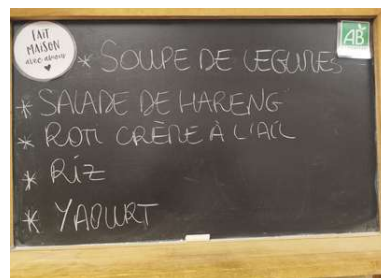 FAIT
MAISON
avec amour
AB
* SOUPE DE LEGUMES
* SALADE DE HARENG
* ROTI CRÈME À L'AIL
* RIZ
* YAOURT